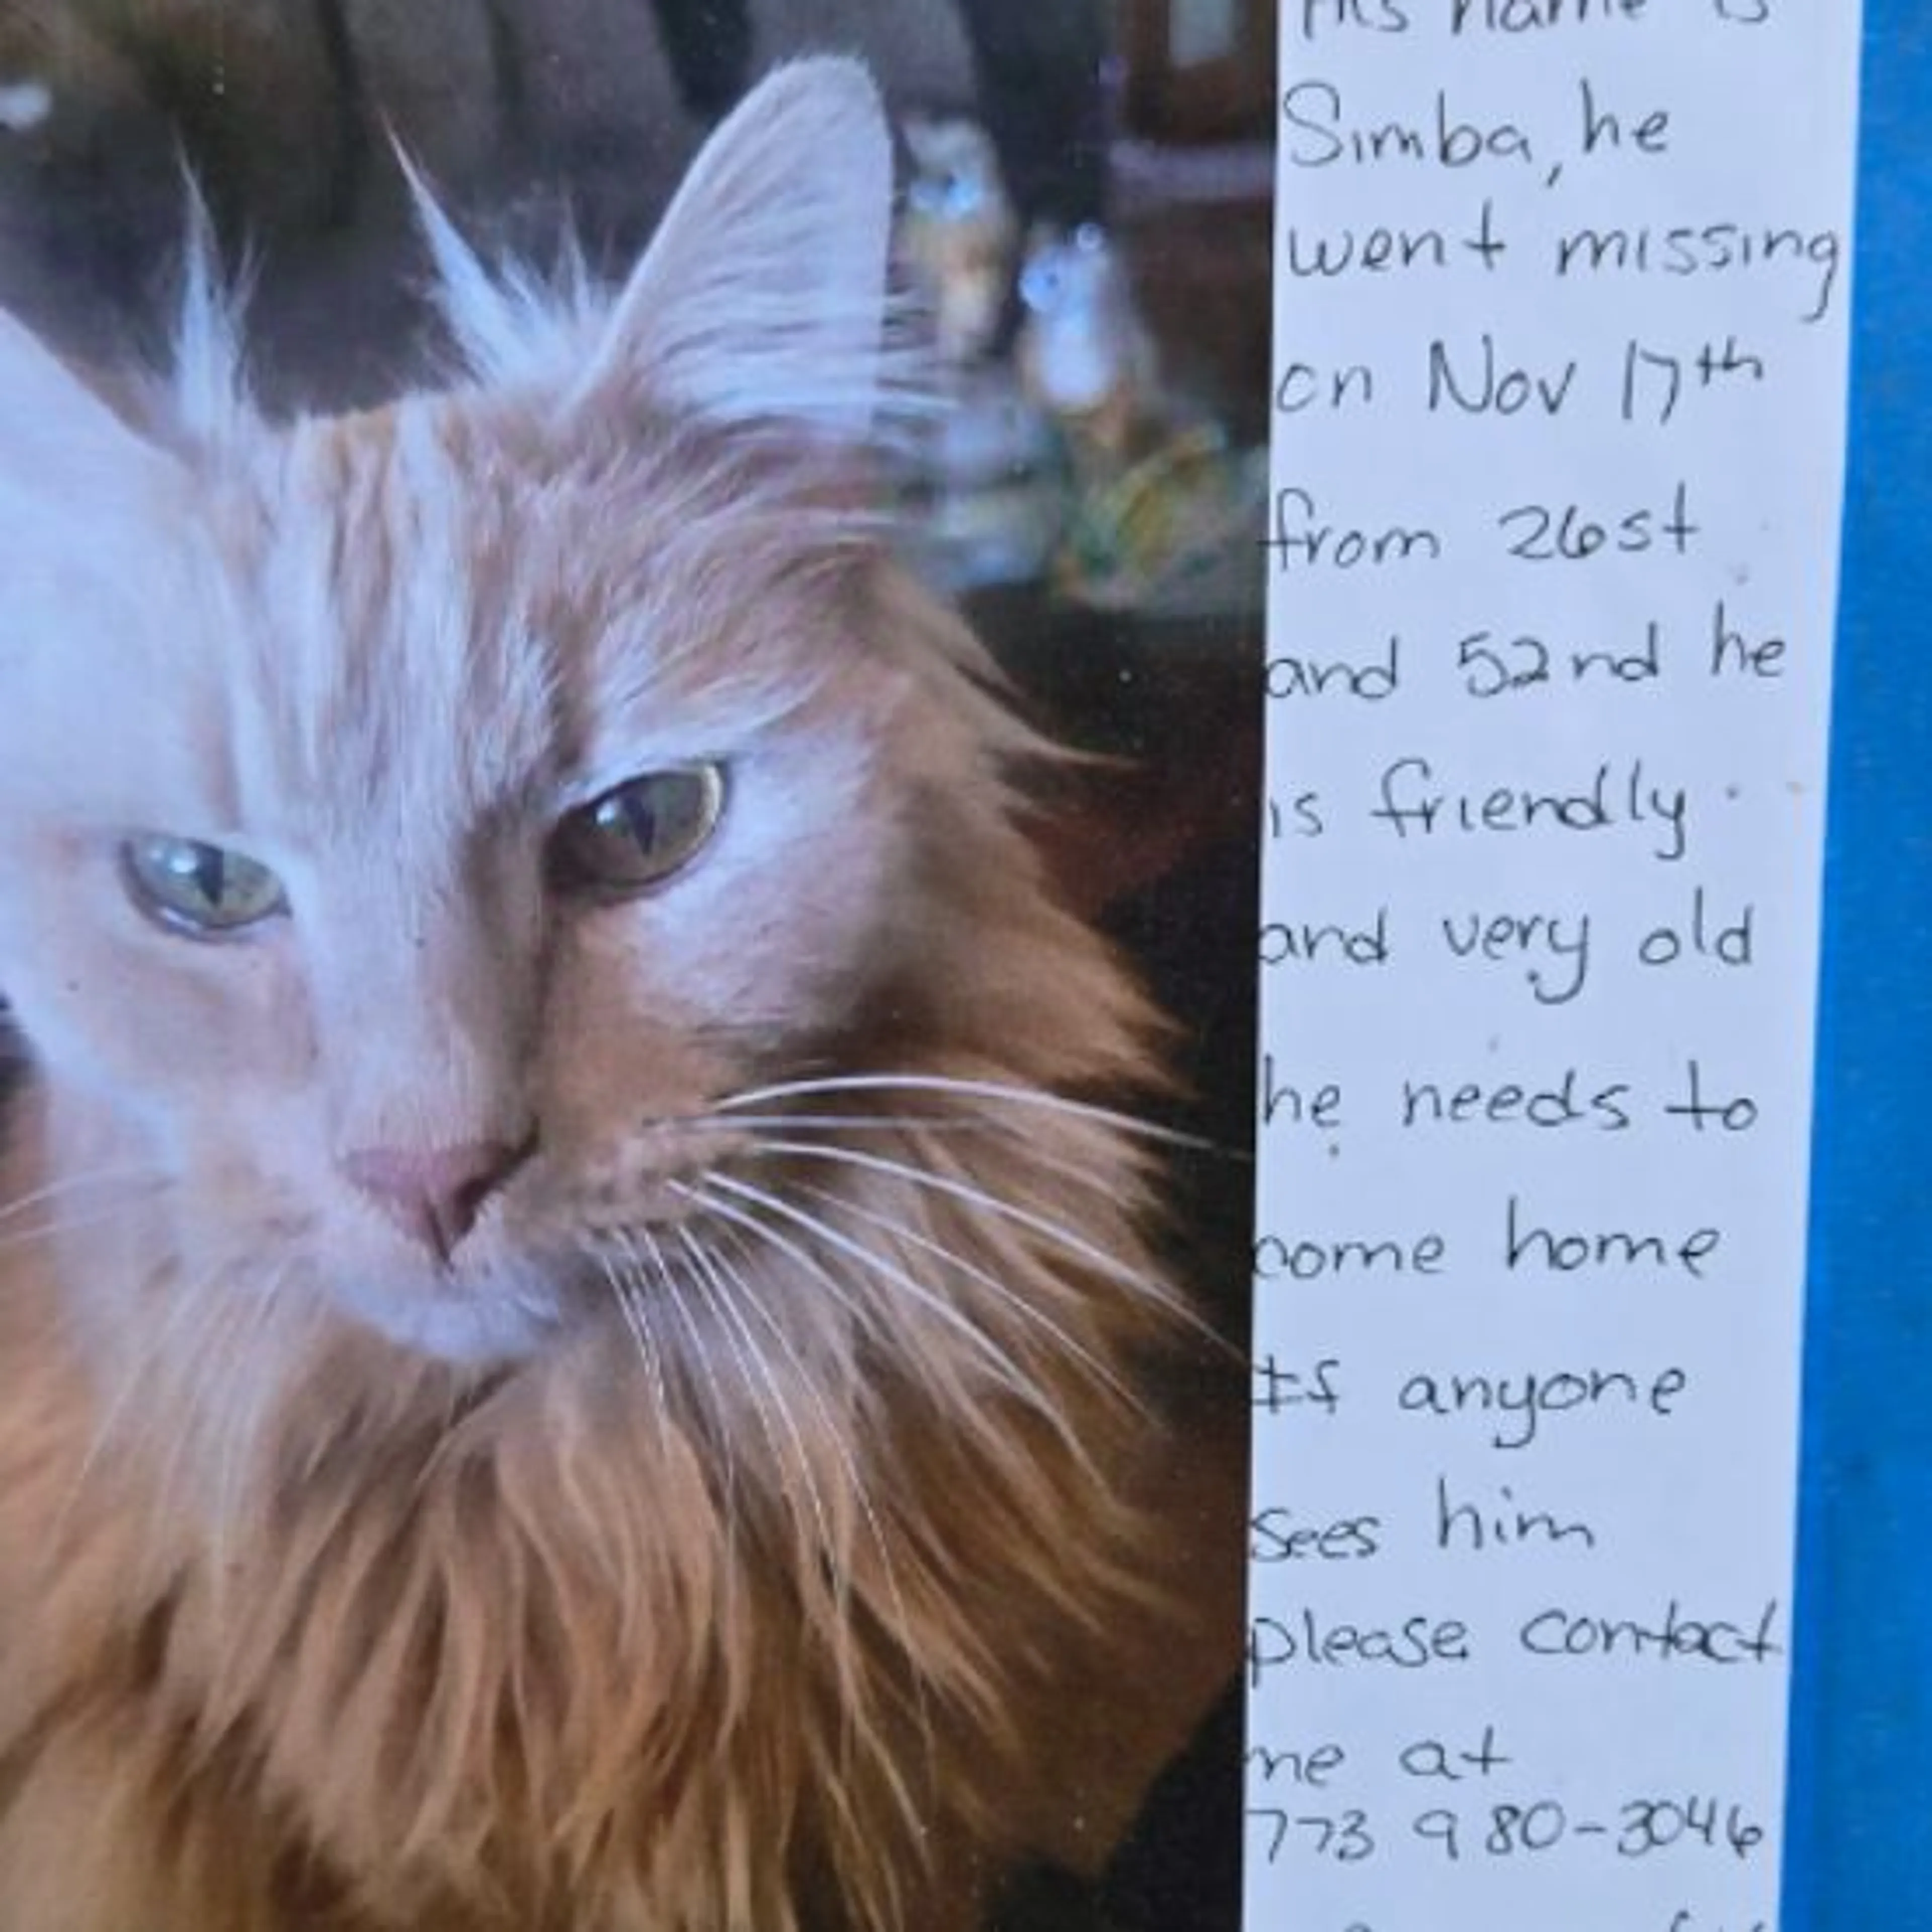 His name is
Simba, he
went missing
on Nov 17th
from 26st
and 52nd he
is friendly
and very old
he needs to
come home
If anyone
sees him
please contact
me at
773 980-3046